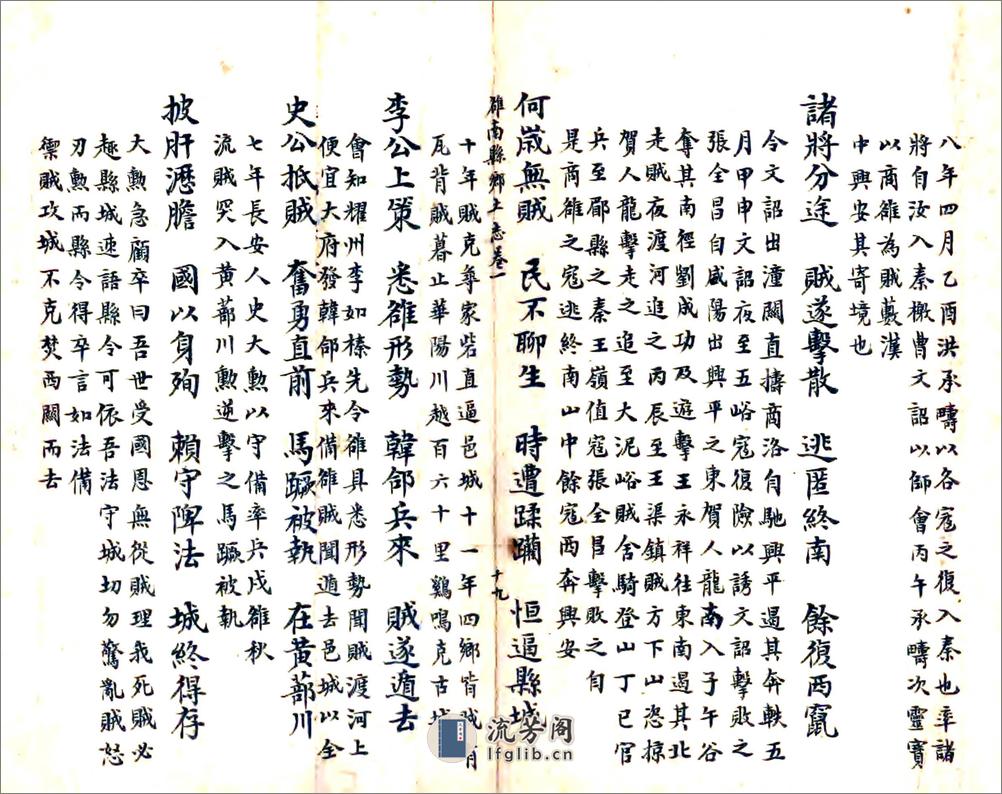 八年四月乙酉洪承疇以各寇之復入秦也率諸
將自汝入秦檄曹文詔以師會丙午承疇次靈寶
以商雒為賊藪漢
中興安其寄境也
諸將分途　賊遂擊散　逃匿終南　餘復西竄
今文詔出潼關直擣商洛自馳興平遏其奔軼五
月甲申文詔夜至五峪寇復險以誘文詔擊敗之
張全昌自咸陽出興平之東賀人龍南入子午谷
奪其南徑劉成功及遊擊王永祥往東南遏其北
走賊夜渡河追之丙辰至王渠鎮賊方下山恣掠
賀人龍擊走之追至大泥峪賊舍騎登山丁巳官
兵至郿縣之秦王嶺值寇張全昌擊敗之自
是商雒之寇逃終南山中餘寇西奔興安
何歲無賊　民不聊生　時遭蹂躪　恒逼縣城
雒南縣鄉土志卷一
十九
十年賊克尊家砦直逼邑城十一年四鄉皆賊
瓦背賊暮止華陽川越百六十里鷄鳴克古城
李公上策　悉雒形勢　韓郃兵來　賊遂遁去
會知耀州李如榛先令雒具悉形勢聞賊渡河上
便宜大府發韓郃兵來備雒賊聞遁去邑城以全
史公抵賊　奮勇直前　馬蹶被執　在黃蔀川
七年長安人史大勲以守備率兵戍雒秋
流賊突入黃蔀川勲逆擊之馬蹶被執
披肝瀝膽　國以身殉　賴守陴法　城終得存
大勲急顧卒曰吾世受國恩無從賊理我死賊必
趣縣城速語縣令可依吾法守城切勿驚亂賊怒
刃勲而縣令得卒言如法備
禦賊攻城不克焚西關而去
流芳阁
lfglib.cn